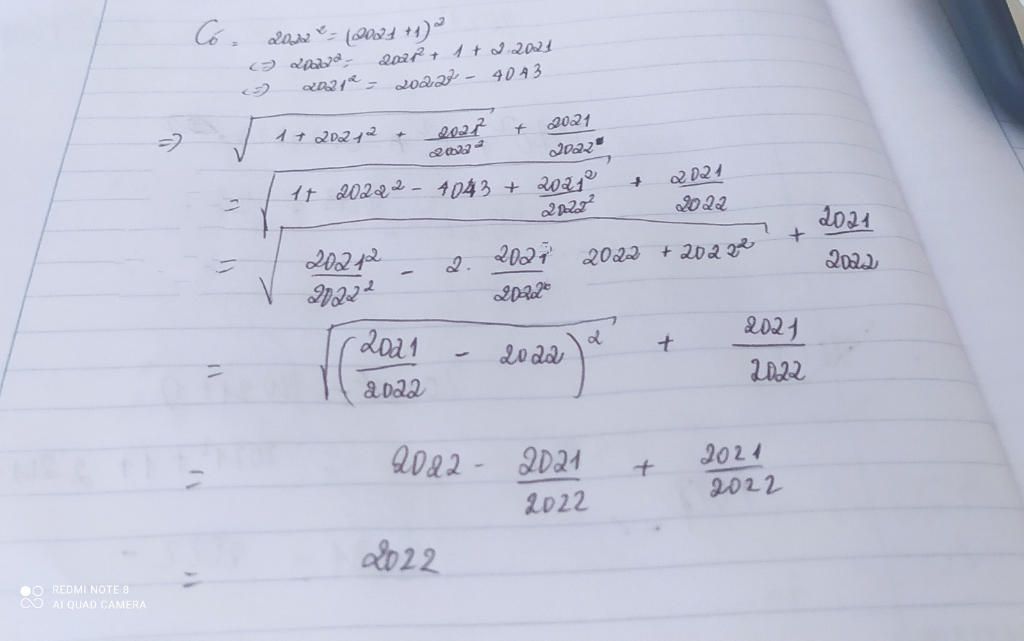 Có: 2022² = (2021+1)²
<=> 2022² = 2021² + 1 + 2.2021
<=> 2021² = 2022² - 4043
=> √(1 + 2021² + 2021²/2022²) + 2021/2022
= √(1 + 2022² - 4043 + 2021²/2022²) + 2021/2022
= √(2021²/2022² - 2. 2021/2022 2022 + 2022²) + 2021/2022
= √((2021/2022 - 2022)²) + 2021/2022
= 2022 - 2021/2022 + 2021/2022
= 2022
REDMI NOTE 8
AI QUAD CAMERA